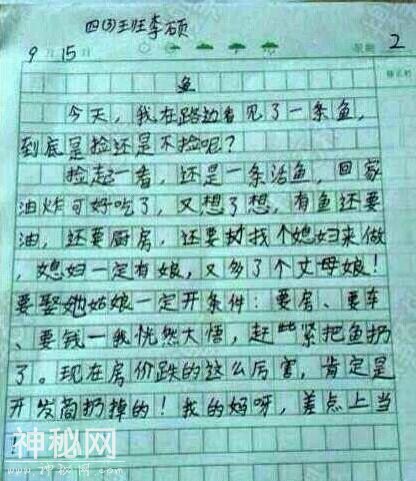 四(3)班李硕
9月15日 星期 2
鱼
今天，我在路边看见了一条鱼，
到底是捡还是不捡呢？
捡起一看，还是一条活鱼，回家
油炸可好吃了，又想了想，有鱼还要
油，还要厨房，还要找个媳妇来做
，媳妇一定有娘，又多了个丈母娘！
要娶她姑娘一定开条件：要房、要车
、要钱—我恍然大悟，赶紧把鱼扔
了。现在房价跌的这么厉害，肯定是
开发商扔掉的！我的妈呀，差点上当
！
神秘网